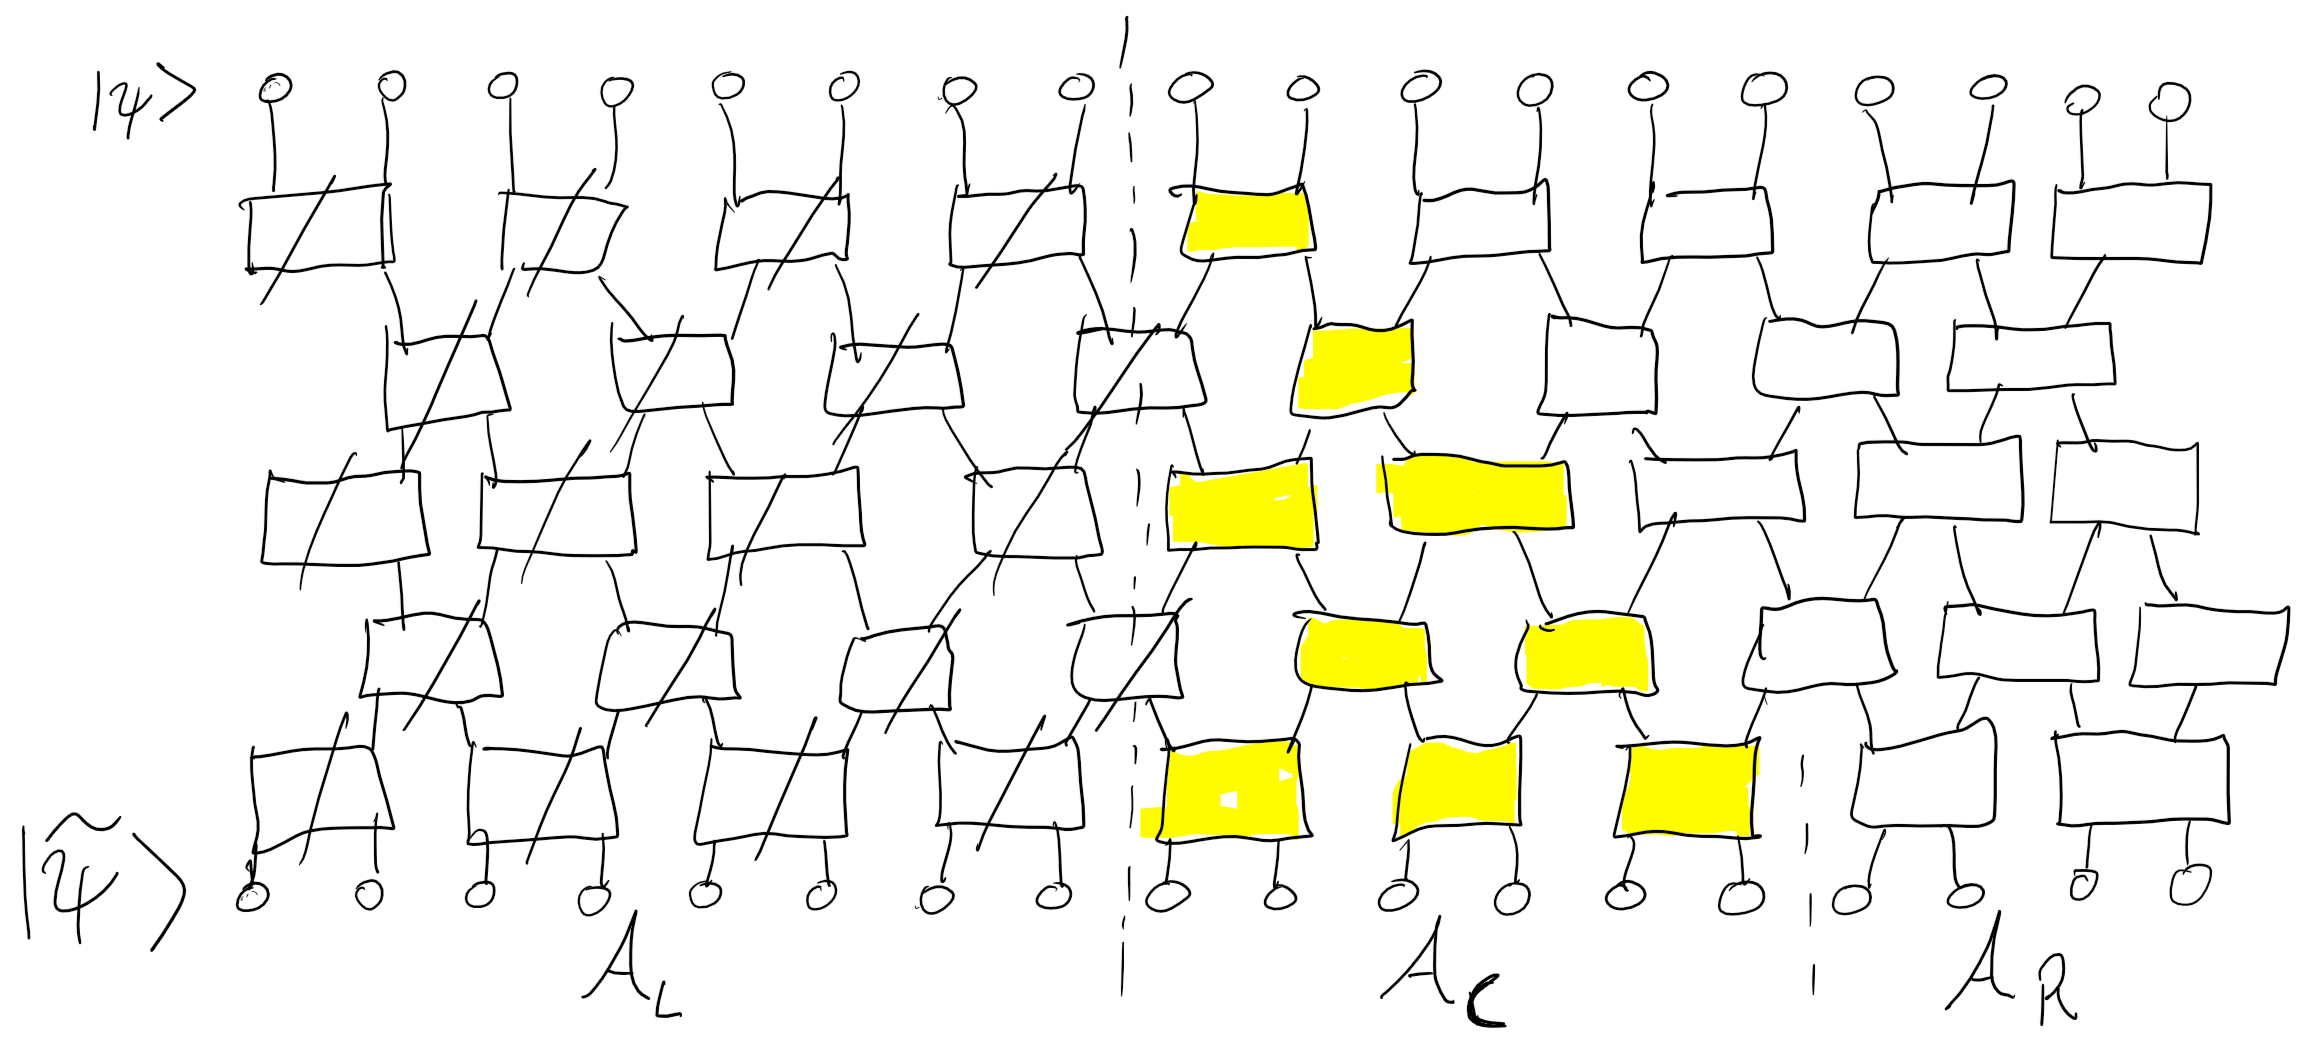 |ψ>
|ψ̃>
A_L
A_C
A_R